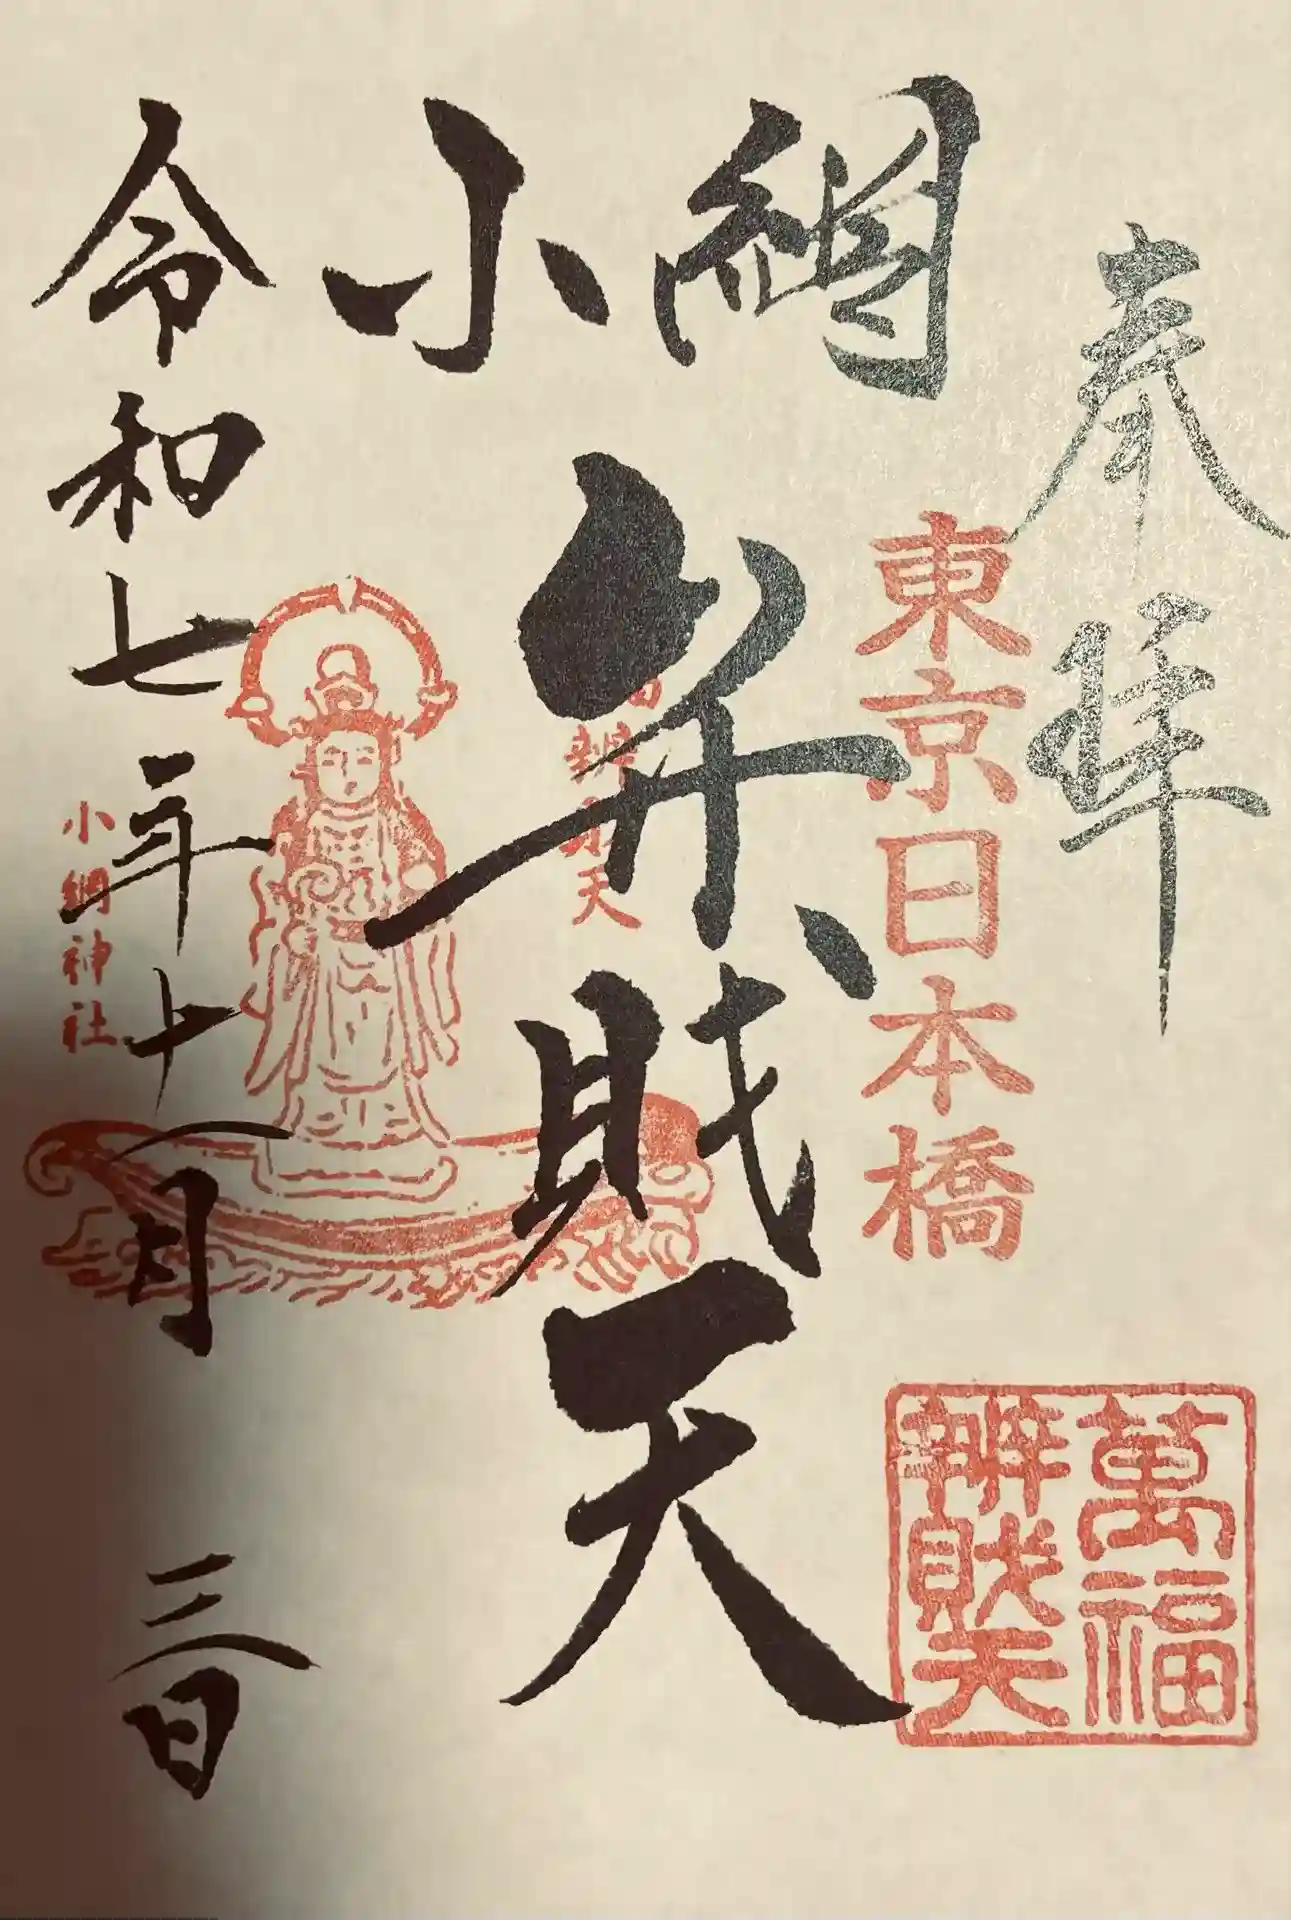 奉拝
東京日本橋
萬福
辨財天
小網
弁財天
辨財天
小網神社
令和七年十一月三日